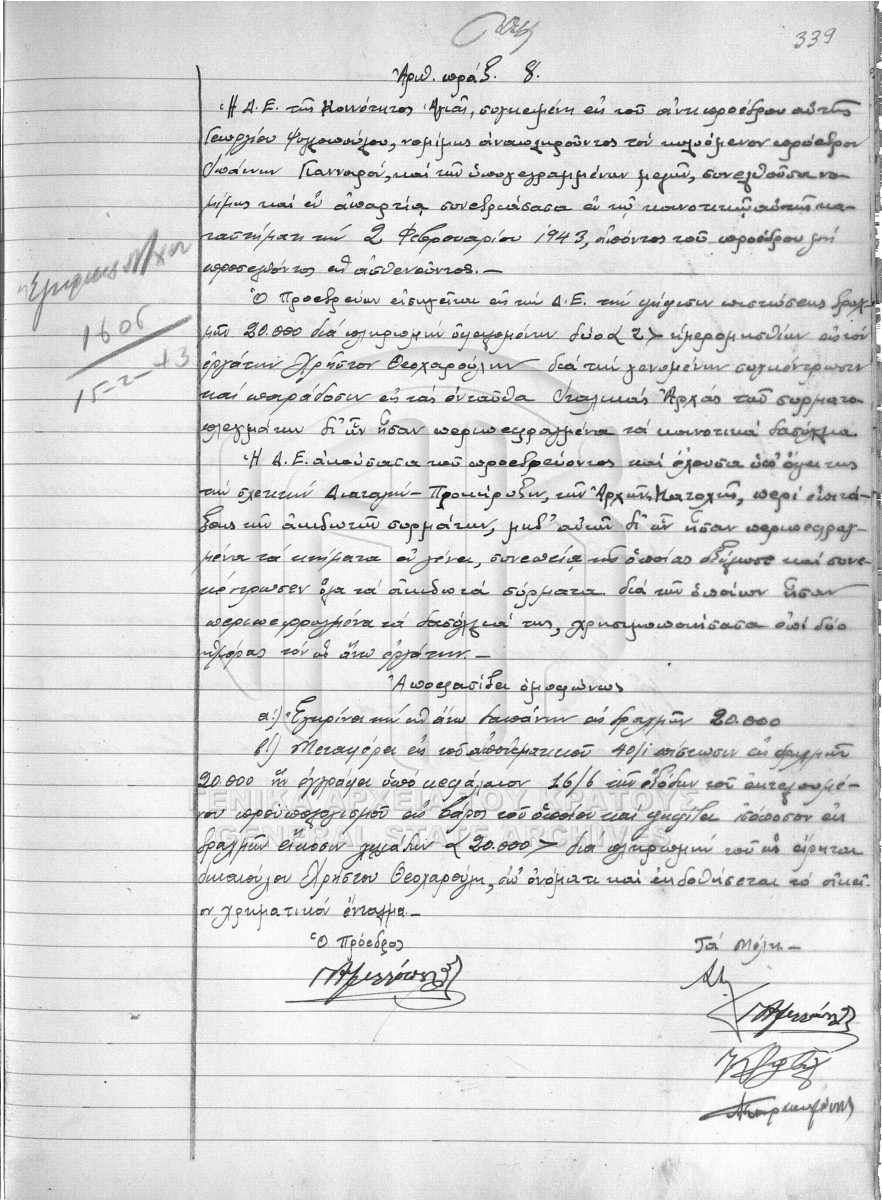 339
Ἀριθ. πράξ. 8.
Ἡ Δ.Ε. τῆς Κοινότητος Ἁγιᾶς, συγκειμένη ἐκ τοῦ ἀντιπροέδρου αὐτῆς
Γεωργίου, νομίμως ἀναπληροῦντος τὸν κωλυόμενον πρόεδρον
Ἰωάννην Γιανναρόν, καὶ τῶν ὑπογεγραμμένων μελῶν, συνελθοῦσα νο-
μίμως καὶ ἐν ἀπαρτίᾳ συνεδριάσασα ἐν τῷ κοινοτικῷ αὐτῆς κα-
ταστήματι τὴν 2 Φεβρουαρίου 1943, ἀπόντος τοῦ προέδρου μὴ
προσελθόντος ἀσθενοῦντος.—
Ὁ Προεδρεύων εἰσηγεῖται εἰς τὴν Δ.Ε. τὴν ψήφισιν πιστώσεως δραχ-
μῶν 20.000 διὰ πληρωμὴν ὀφειλομένων δύο <2> ἡμερομισθίων εἰς τὸν
ἐργάτην Χρῆστον Θεοχαρούλην διὰ τὴν γενομένην συγκέντρωσιν
καὶ παράδοσιν εἰς τὰς ἐνταῦθα Ἰταλικὰς Ἀρχὰς τοῦ συρματο-
πλεγμάτων δι' ὧν ἦσαν περιπεφραγμένα τὰ κοινοτικὰ δασύλλια
Ἡ Δ.Ε. ἀκούσασα τοῦ προεδρεύοντος καὶ ἔχουσα ὑπ' ὄψει της
τὴν σχετικὴν Διαταγὴν - Προκήρυξιν, τῶν Ἀρχῶν Κατοχῆς, περὶ ἐπιτά-
ξεως τῶν ἀκιδωτῶν συρμάτων, μηδ' αὐτῶν δι' ὧν ἦσαν περιπεφραγ-
μένα τὰ κτήματα ἐν γένει, συνεπείᾳ τῆς ὁποίας καὶ συνε-
κέντρωσεν ὅλα τὰ ἀκιδωτὰ σύρματα διὰ τῶν ὁποίων ἦσαν
περιπεφραγμένα τὰ δασύλλιά της, χρησιμοποιήσασα ἐπὶ δύο
ἡμέρας τὸν ὡς ἄνω ἐργάτην.—
Ἀποφασίζει ὁμοφώνως
α.) Ἐγκρίνει τὴν ὡς ἄνω δαπάνην ἐκ δραχμῶν 20.000
β.) Μεταφέρει ἐκ τοῦ ἀποθεματικοῦ 40/1 πίστωσιν ἐκ δραχμῶν
20.000 ἣν ἐγγράφει ὑπὸ κεφάλαιον 16/6 τῶν ἐξόδων τοῦ ἐκτελουμέ-
νου προϋπολογισμοῦ εἰς βάρος τοῦ ὁποίου καὶ ψηφίζει ἰσόποσον ἐκ
δραχμῶν εἴκοσι χιλιάδων <20.000> διὰ πληρωμὴν τοῦ ὡς εἴρηται
δικαιούχου Χρήστου Θεοχαρούλη, ἐπ' ὀνόματι καὶ ἐκδοθήσεται τὸ οἰκεῖ-
ον χρηματικὸν ἔνταλμα.—
Ὁ Πρόεδρος
Τὰ Μέλη.—
1605
15-2-43
ΓΕΝΙΚΑ ΑΡΧΕΙΑ ΤΟΥ ΚΡΑΤΟΥΣ
GENERAL STATE ARCHIVES